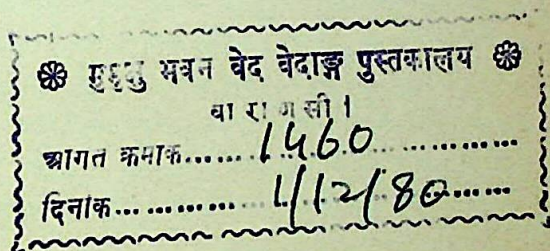 मुमुक्षु भवन वेद वेदाङ्ग पुस्तकालय
वा रा ण सी ।
आगत क्रमांक...... 1460 ......
दिनांक...... 1/12/80 ......